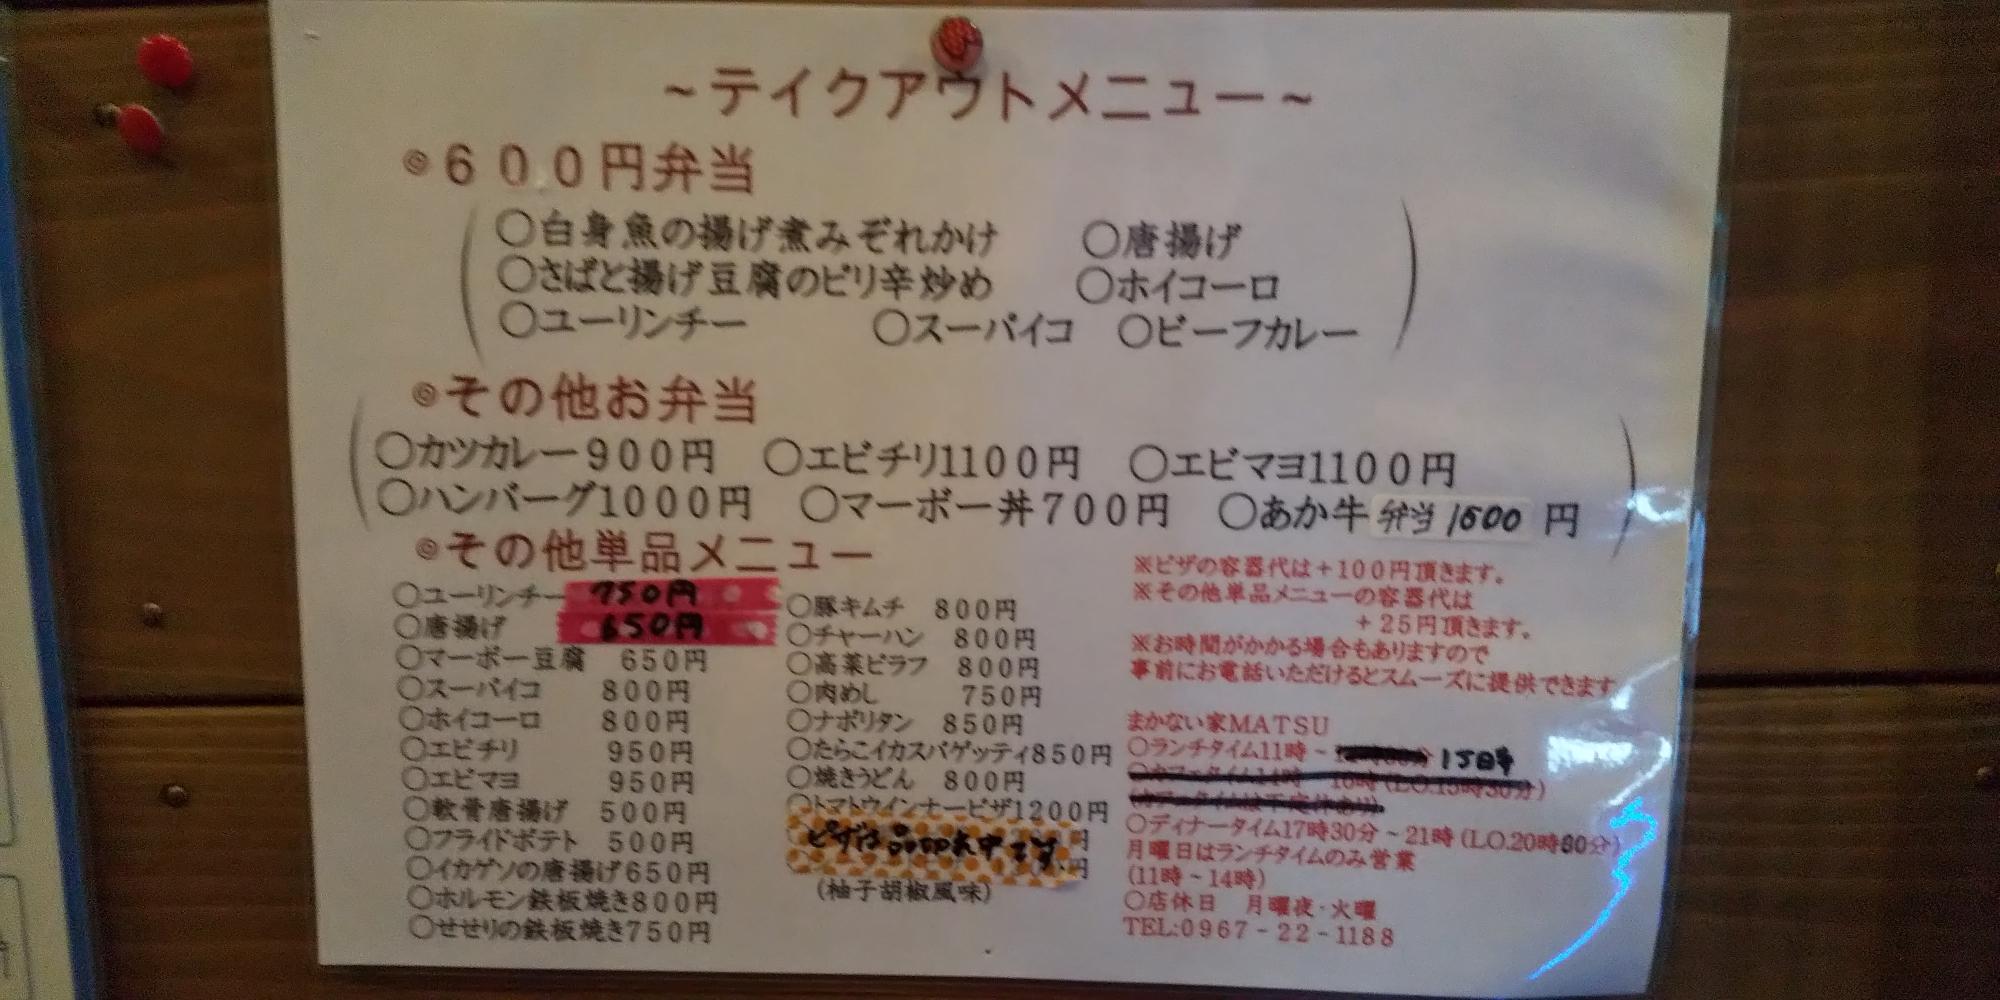 ～テイクアウトメニュー～
◎６００円弁当
○白身魚の揚げ煮みぞれかけ　○唐揚げ
○さばと揚げ豆腐のピリ辛炒め　○ホイコーロ
○ユーリンチー　○スーパイコ　○ビーフカレー
◎その他お弁当
○カツカレー９００円　○エビチリ1１００円　○エビマヨ1１００円
○ハンバーグ1０００円　○マーボー丼７００円　○あか牛弁当1600円
◎その他単品メニュー
○ユーリンチー 750円
○唐揚げ 650円
○マーボー豆腐　６５０円
○スーパイコ　８００円
○ホイコーロ　８００円
○エビチリ　９５０円
○エビマヨ　９５０円
○軟骨唐揚げ　５００円
○フライドポテト　５００円
○イカゲソの唐揚げ６５０円
○ホルモン鉄板焼き８００円
○せせりの鉄板焼き７５０円
○豚キムチ　８００円
○チャーハン　８００円
○高菜ピラフ　８００円
○肉めし　７５０円
○ナポリタン　８５０円
○たらこイカスパゲッティ８５０円
○焼きうどん　８００円
○トマトウインナーピザ1２００円
ピザは品切れ中です 円
円
（柚子胡椒風味）
※ピザの容器代は＋1００円頂きます。
※その他単品メニューの容器代は
＋２５円頂きます。
※お時間がかかる場合もありますので
事前にお電話いただけるとスムーズに提供できます
まかない家ＭＡＴＳＵ
○ランチタイム11時～ 15時
○ディナータイム17時30分～21時（LO.20時30分）
月曜日はランチタイムのみ営業
（11時～14時）
○店休日　月曜夜・火曜
TEL:０９６７－２２－1188